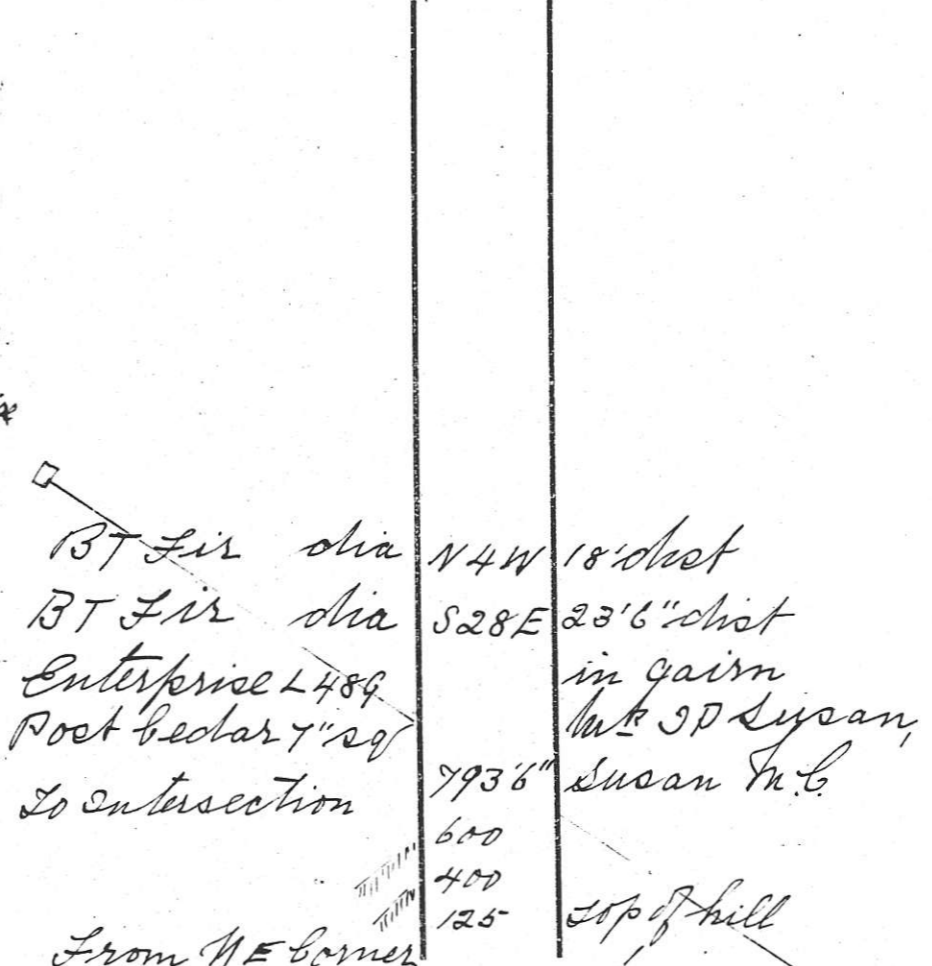 BT Fir dia N4W 18' dist
BT Fir dia S28E 23'6" dist
Enterprise L489 in Cairn
Post Cedar 7" sq Mk IP Susan,
To Intersection 793'6" Susan M.C.
600
400
125 Top of hill
From NE Corner